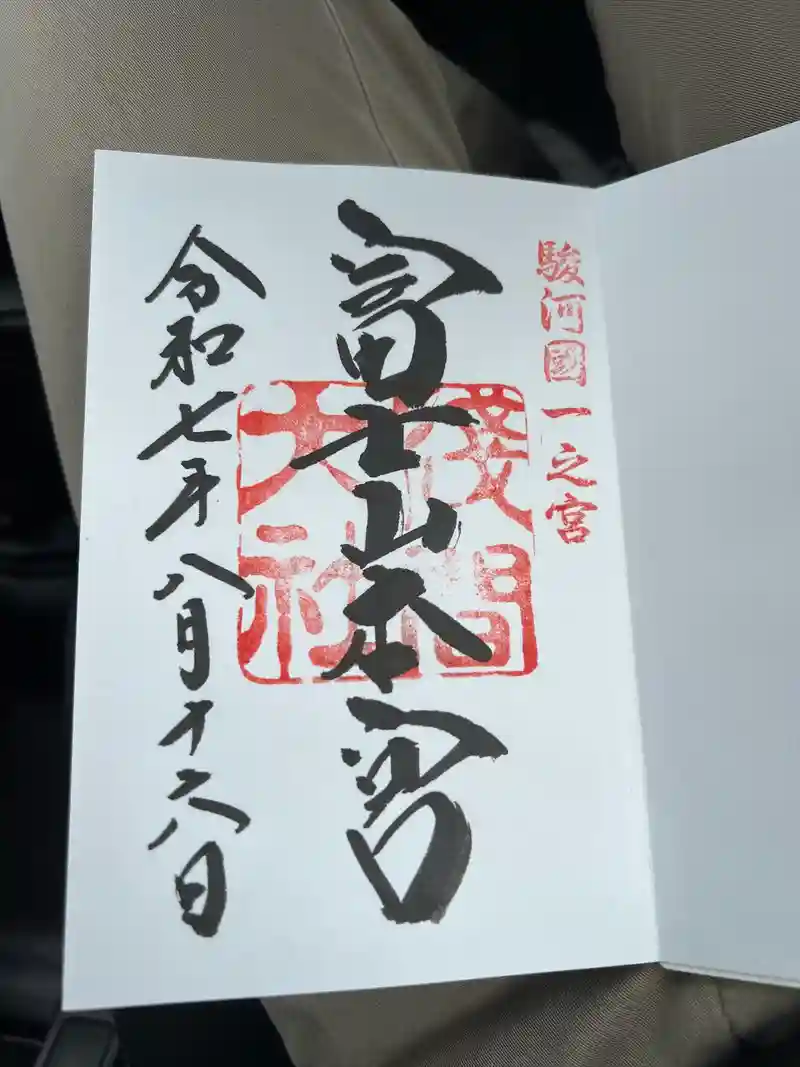 駿河國一之宮
富士山本宮
淺間大社
令和七年八月十六日